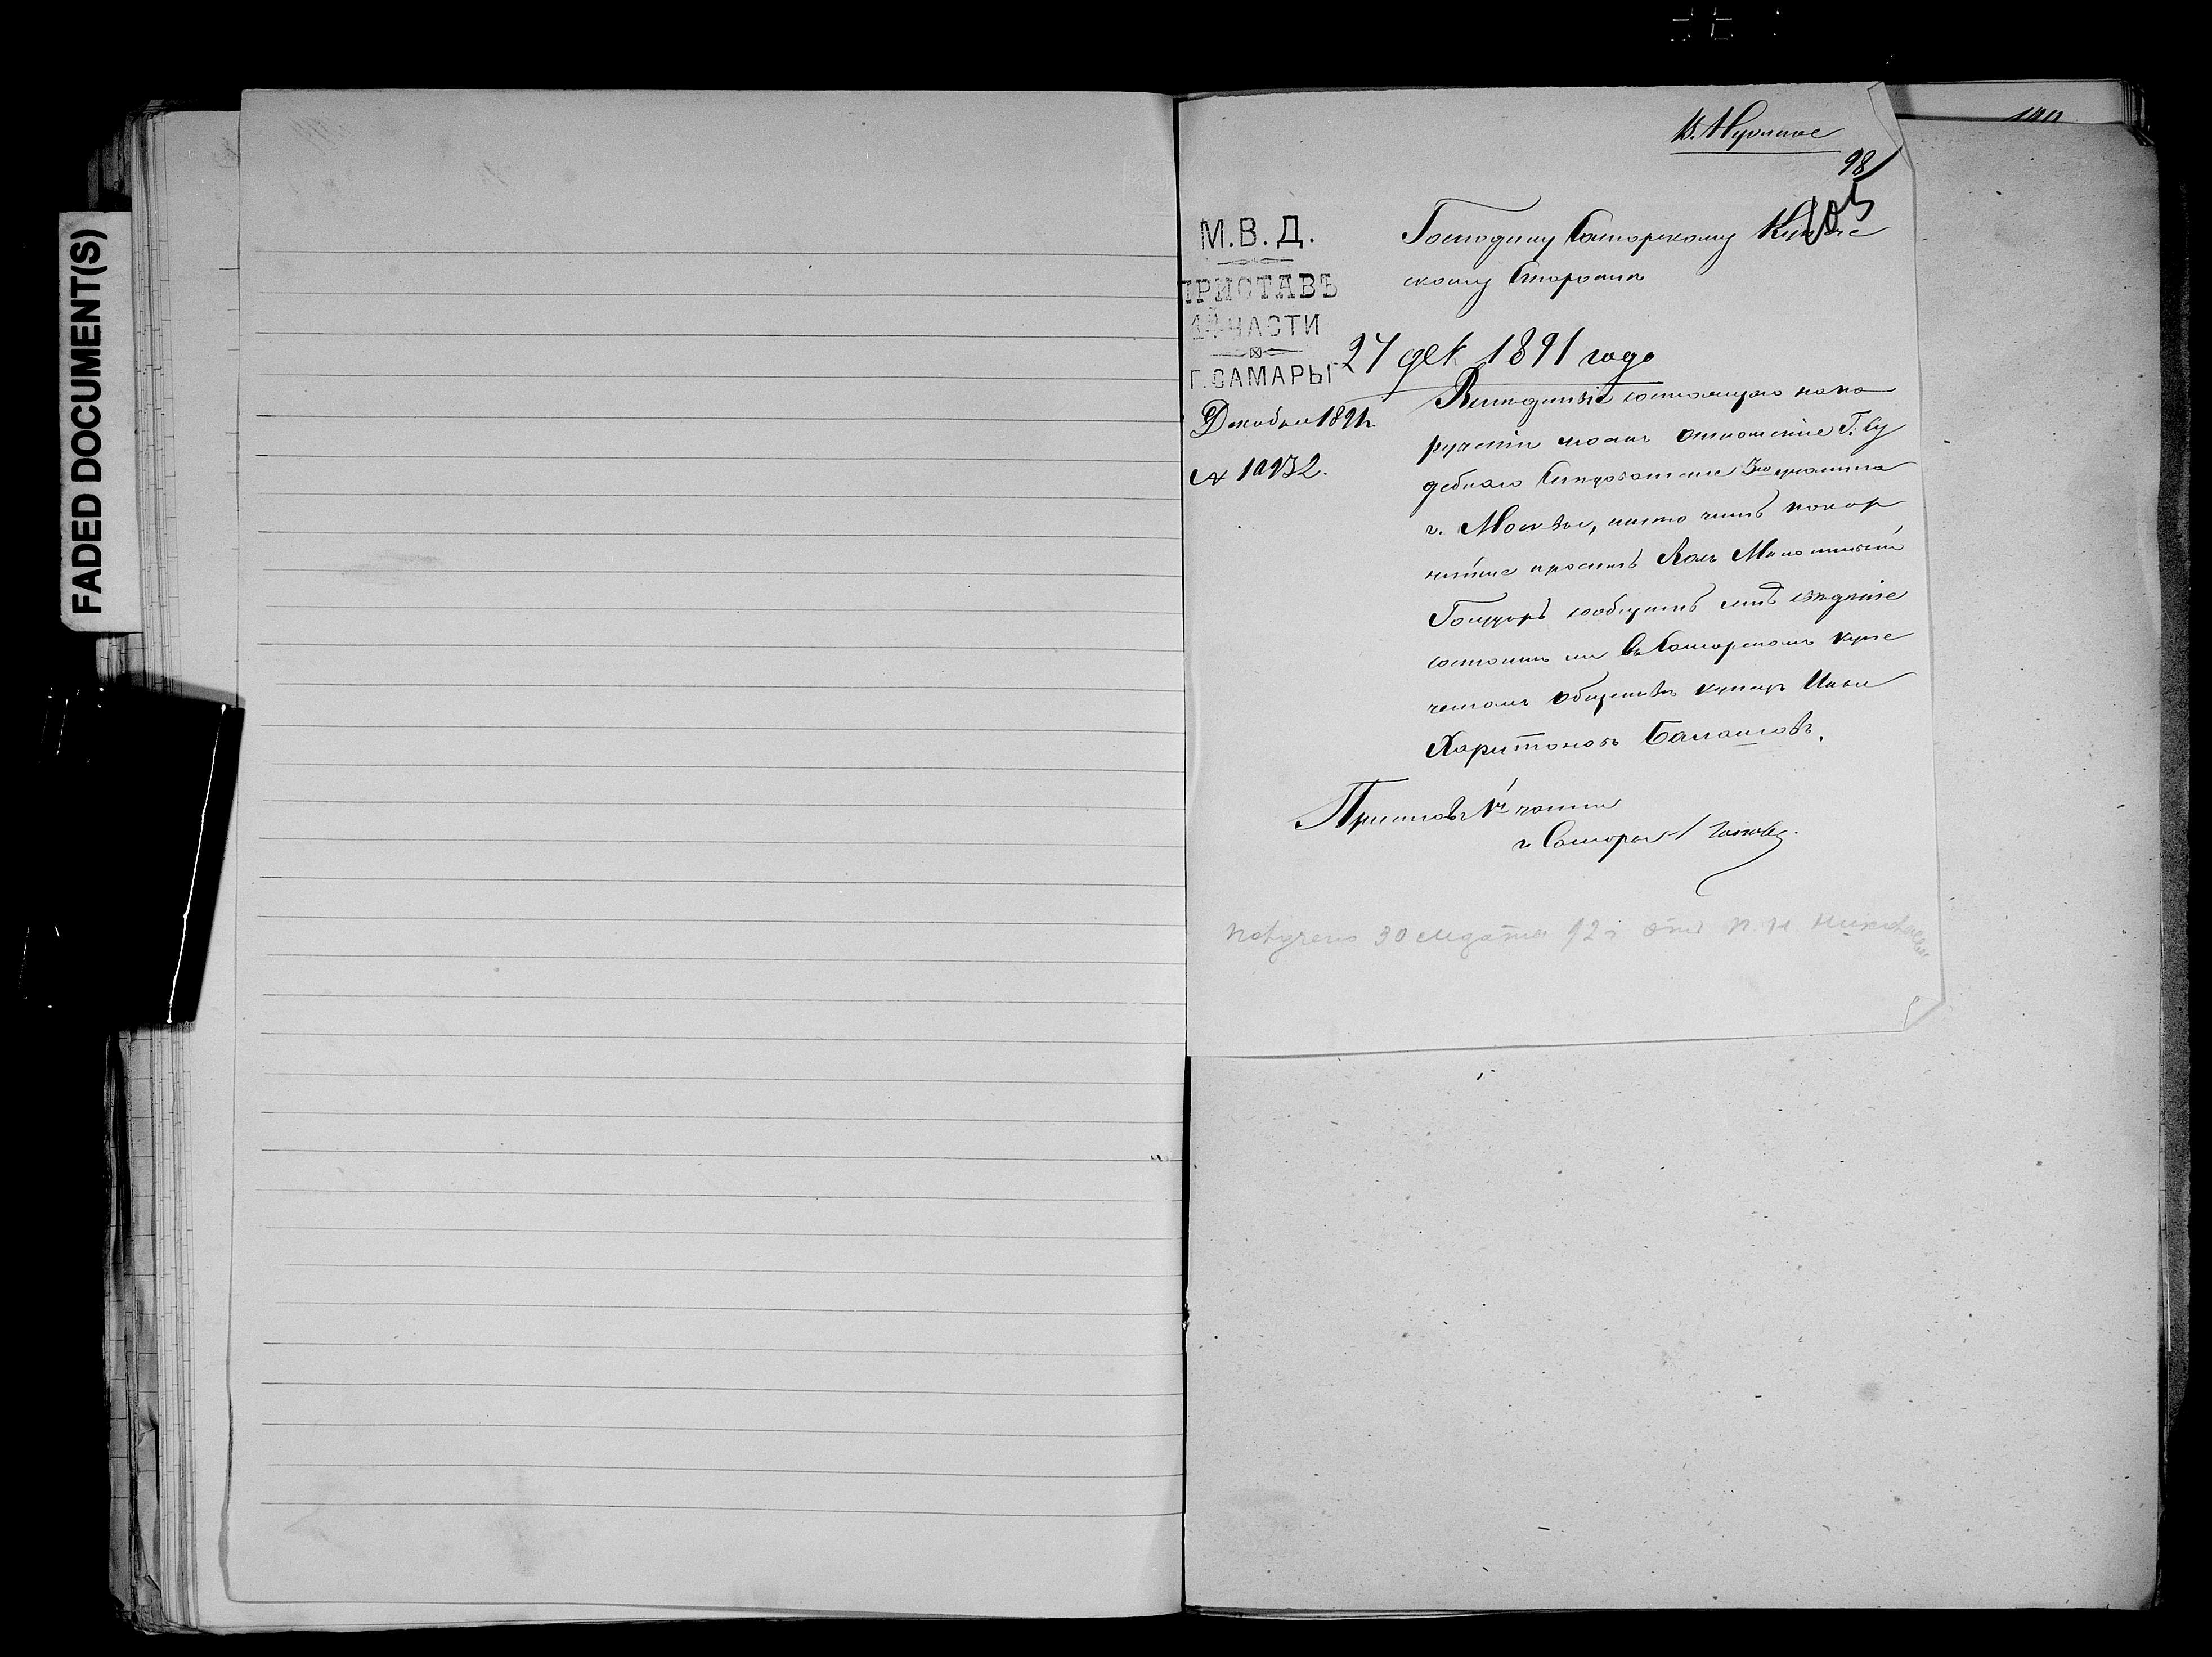 FADED DOCUMENT(S)
В. Нужное
98
103
М.В.Д.
ПРИСТАВЪ
1й ЧАСТИ
Г. САМАРЫ
Декабря 1891 г.
№ 10132.
Господину Самарскому Купече
скому Старостѣ
27 дек 1891 года
Вслѣдствіе состоящаго на по
рученіи моемъ отношенія Г. Су
дебнаго Слѣдователя 3го участка
г. Москвы, имѣю честь покор
нѣйше просить Васъ Милостивый
Государь сообщить мнѣ свѣдѣніе
состоитъ ли въ Самарскомъ купе
ческомъ обществѣ купецъ
Харитоновъ Балашовъ.
Приставъ 1й части
г. Самары
Получено 30 Марта 92 г. отъ П. И.